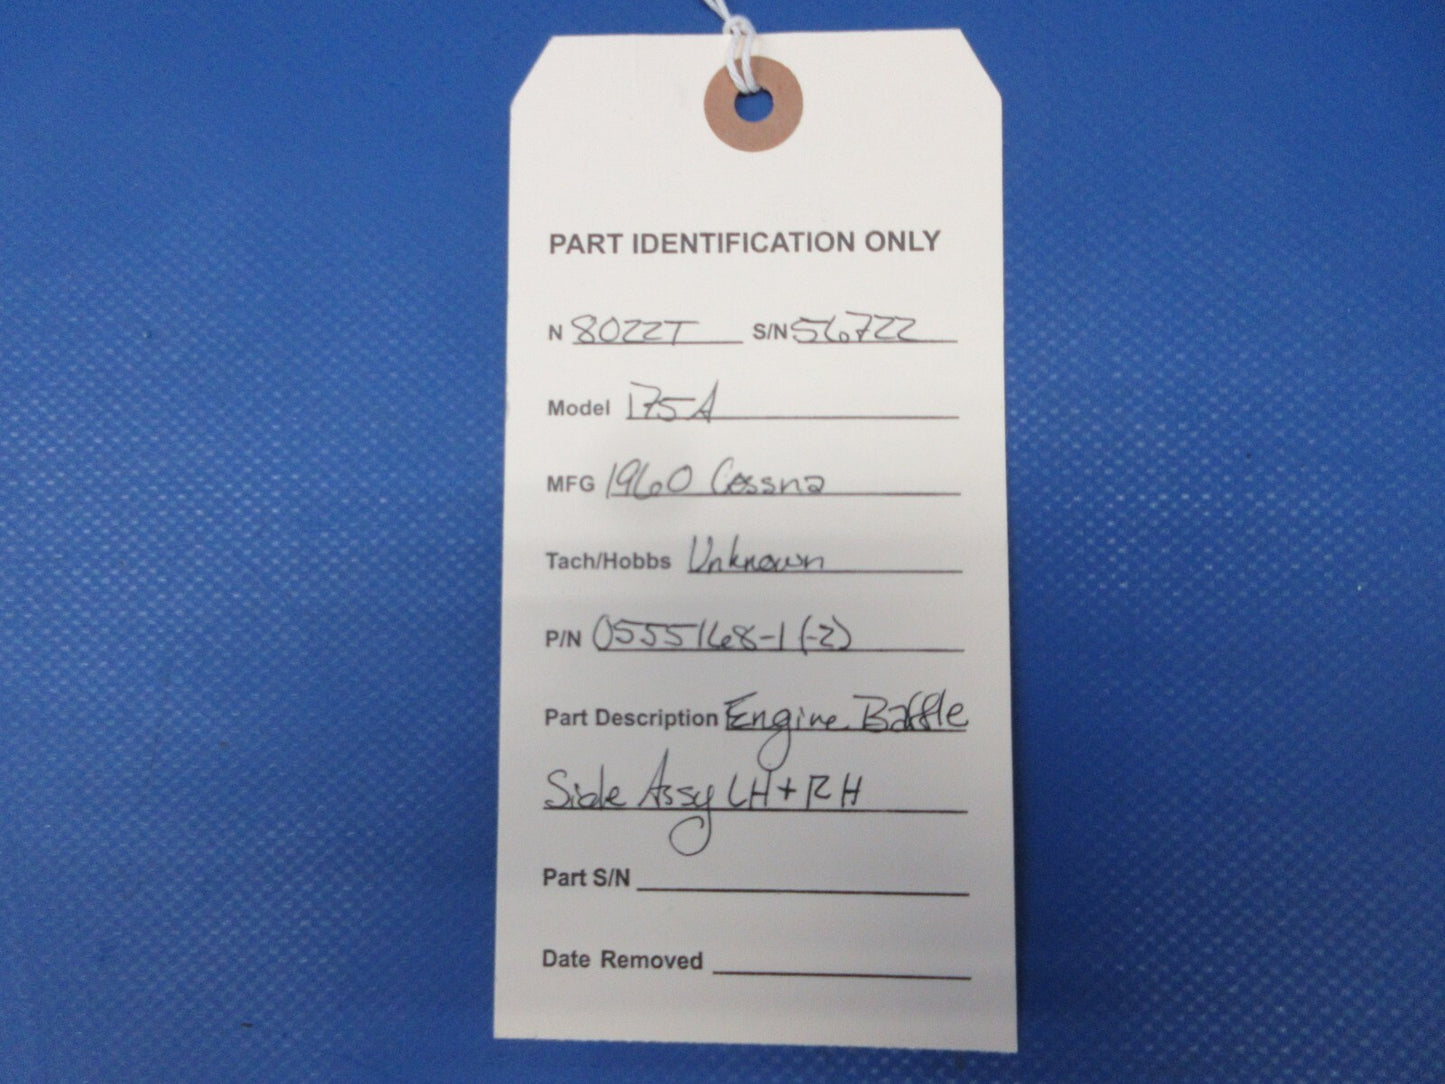 PART IDENTIFICATION ONLY
N 8022T S/N 56722
Model 175A
MFG 1960 Cessna
Tach/Hobbs Unknown
P/N 0555168-1 (-2)
Part Description Engine Baffle
Side Assy LH + RH
Part S/N
Date Removed